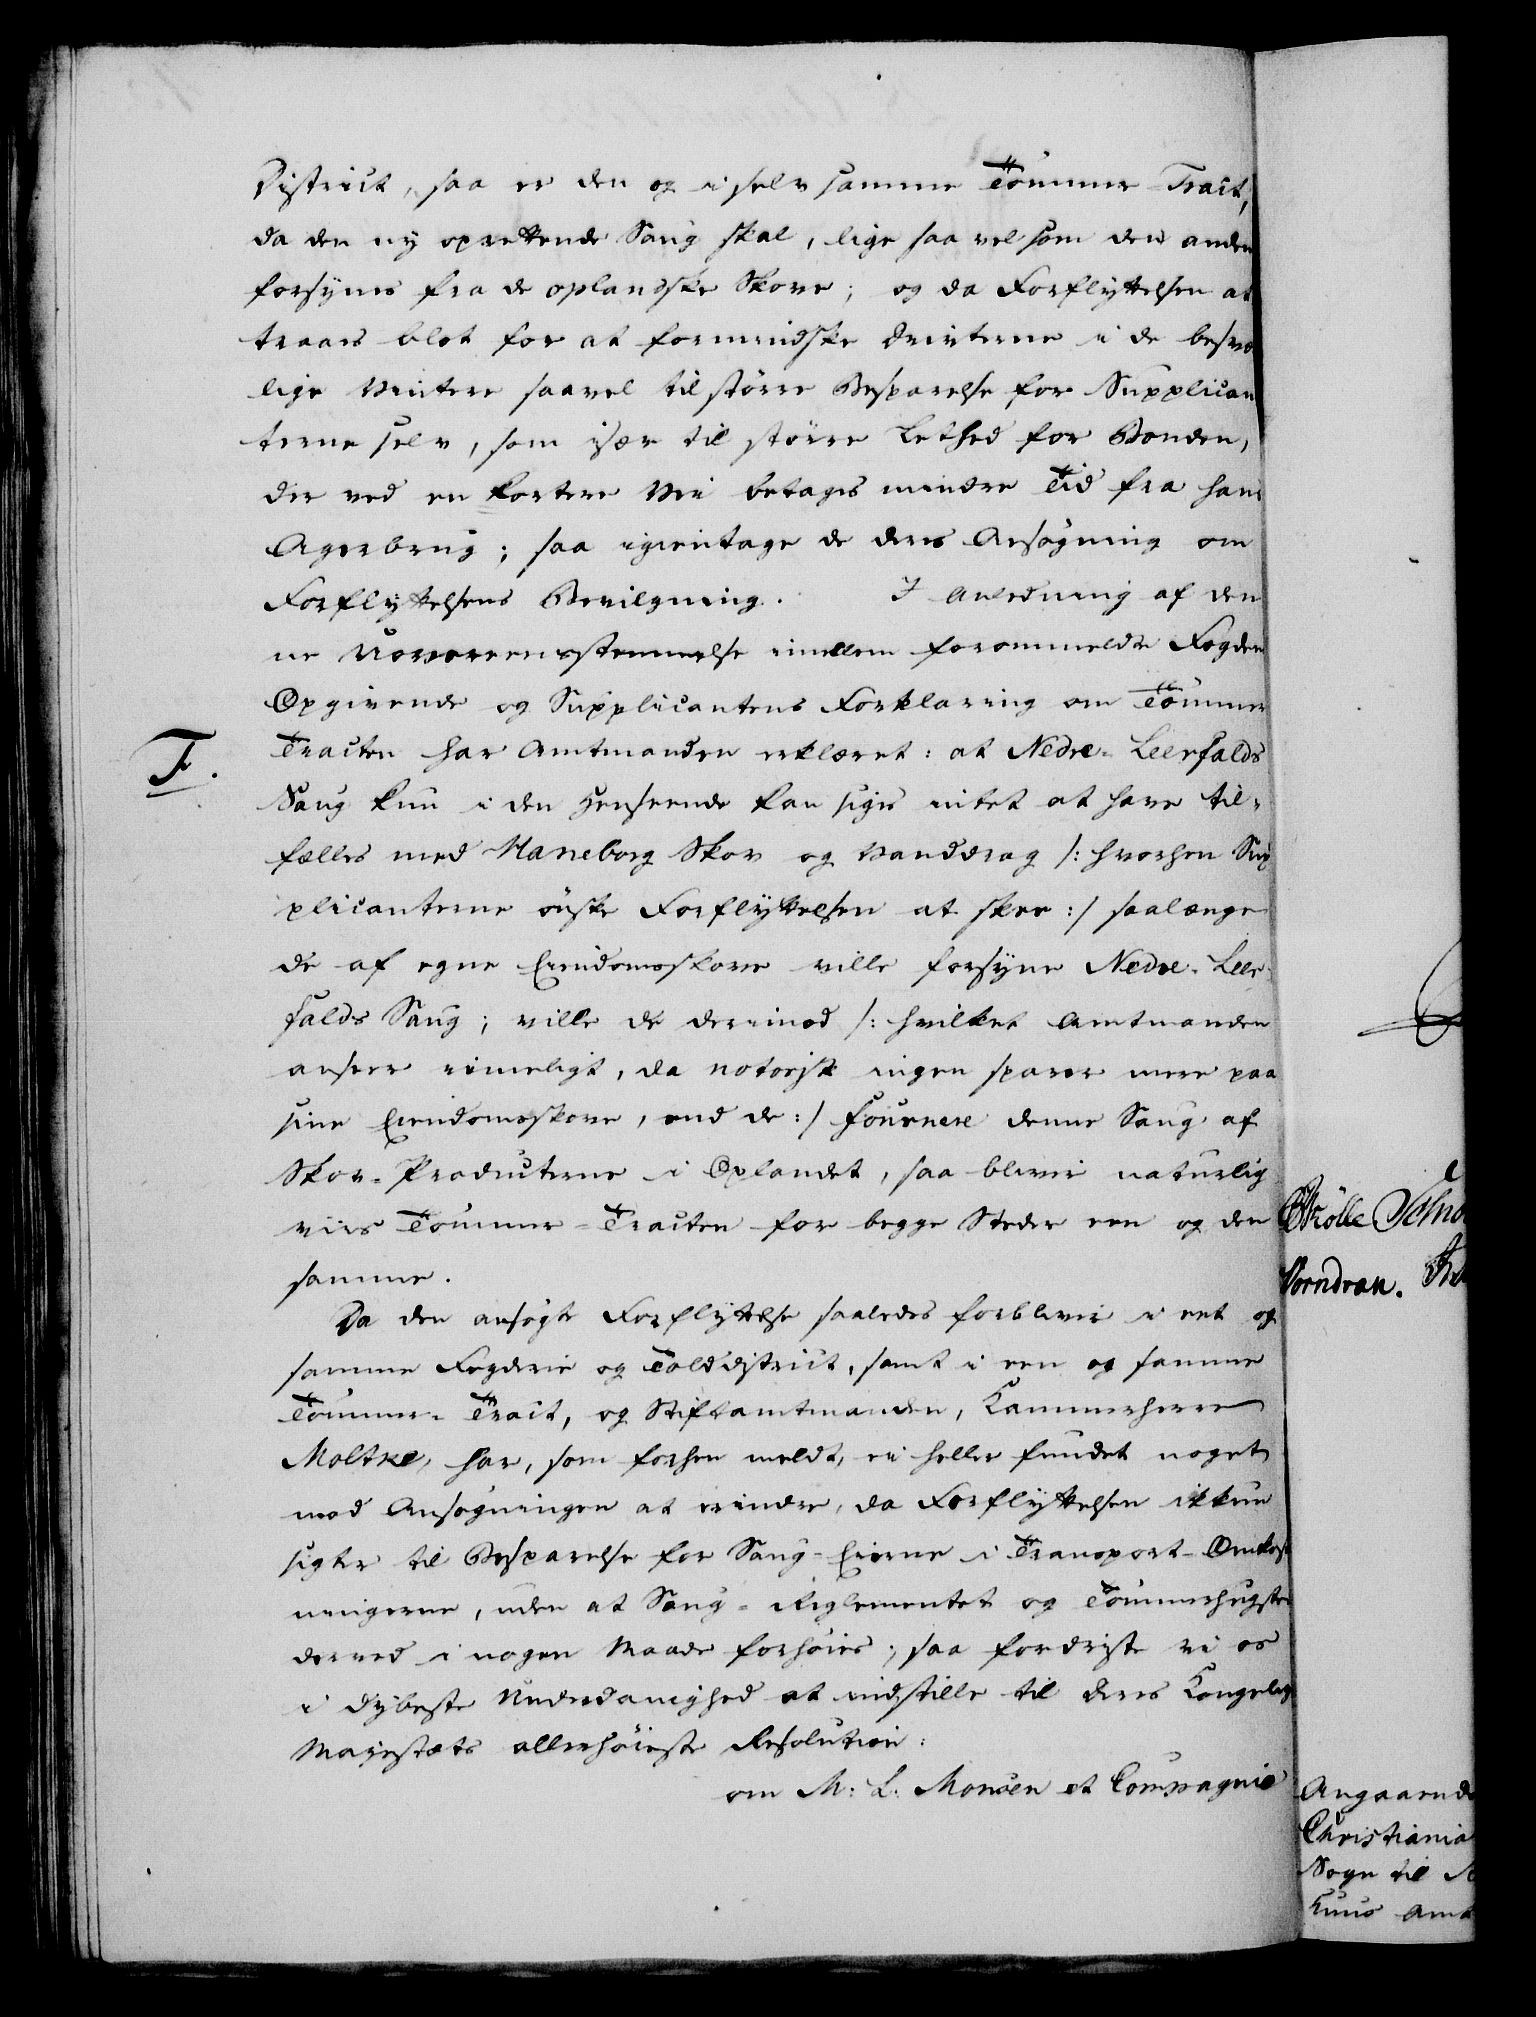 District, saa er den og i selv samme Tömmer-Tract,
da den ny oprettende Saug skal, lige saa vel som den anden
forsynes fra de oplandske Skove; og da Forflyttelsen at
traaes blot for at formindske Drivterne i de besvæ
lige Vintere saavel til större Besparelse for Supplican
terne selv, som især til större Lethed for Bonden,
der ved en kortere Vei betages mindre Tid fra hans
Agerbrug; saa igientage de deres Ansøgning om
Forflyttelsens Bevilgning. I Anledning af den
ne Uovereensstemmelse imellem forommeldte Fogden
Opgivende og Supplicantens Forklaring om Tömmer
Tracten har Amtmanden erklæret: at Nedre-Leerfalds
T.
Saug kun i den Henseende kan siges intet at have til-
fælles med Haneborg Skov og Vanddrag /: hvorhen Sup
plicanterne önske Forflyttelsen at skee :/ saalænge
de af egne Eiendomsskove ville forsyne Nedre-Leer
falds Saug; ville de derimod /: hvilket Amtmanden
anseer rimeligt, da notorisk ingen sparer mere paa
sine Eiendomsskove, end de :/ fournere denne Saug af
Skov-Producterne i Oplandet, saa bliver naturlig
viis Tömmer-Tracten for begge Steder een og den
samme.
Da den ansøgte Forflyttelse saaledes forbliver i eet og
samme Fogderie og Tolddistrict, samt i een og samme
Tömmer-Tract, og Stiftamtmanden, Kammerherre
Moltke, har, som forhen meldt, ei heller fundet noget
mod Ansøgningen at erindre, da Forflyttelsen ikkun
sigter til Besparelse for Saug-Eierne i Transport-Omkost
ningerne, uden at Saug-Reglementet og Tömmerhugsten
derved i nogen Maade forhöies; saa fordriste vi os
i dybeste Underdanighed at indstille til Deres Kongelige
Majestæts allerhöieste Resolution:
om M: L: Monsen et Compagnie
Krölle Schno
Vorndran.
Angaaende
Christiania
Sogn til
Huus Amt